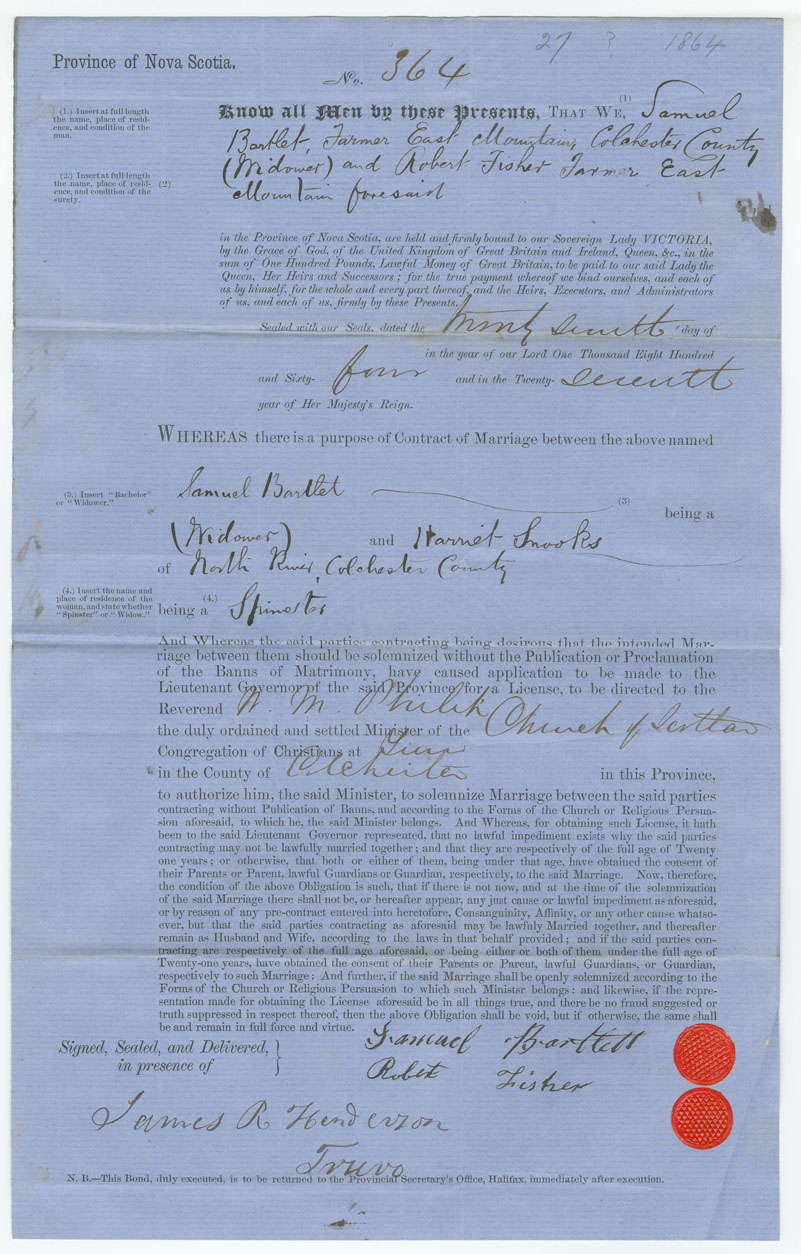 27 ? 1864
Province of Nova Scotia.
No. 364
(1.) Insert at full length
the name, place of resid-
ence, and condition of the
man.
Know all Men by these Presents, THAT WE, (1) Samuel
Bartlet, Farmer East Mountain, Colchester County
(Widower) and Robert Fisher Farmer East
Mountain foresaid
(2.) Insert at full length
the name, place of resid-
ence, and condition of the
surety.
(2)
in the Province of Nova Scotia, are held and firmly bound to our Sovereign Lady VICTORIA,
by the Grace of God, of the United Kingdom of Great Britain and Ireland, Queen, &c., in the
sum of One Hundred Pounds, Lawful Money of Great Britain, to be paid to our said Lady the
Queen, Her Heirs and Successors; for the true payment whereof we bind ourselves, and each of
us by himself, for the whole and every part thereof, and the Heirs, Executors, and Administrators
of us, and each of us, firmly by these Presents.
Sealed with our Seals, dated the day of
in the year of our Lord One Thousand Eight Hundred
and Sixty- four and in the Twenty- seventh
year of Her Majesty's Reign.
WHEREAS there is a purpose of Contract of Marriage between the above named
(3.) Insert "Bachelor"
or "Widower."
Samuel Bartlet (3)
being a
(Widower) and Harriet Snooks
of North River, Colchester County
(4.) Insert the name and
place of residence of the
woman, and state whether
"Spinster" or "Widow."
(4.)
being a Spinster
And Whereas the said parties contracting being desirous that the intended Mar-
riage between them should be solemnized without the Publication or Proclamation
of the Banns of Matrimony, have caused application to be made to the
Lieutenant Governor of the said Province for a License, to be directed to the
Reverend W. M. Philip
the duly ordained and settled Minister of the Church of Scotlan
Congregation of Christians at
in the County of Colchester in this Province,
to authorize him, the said Minister, to solemnize Marriage between the said parties
contracting without Publication of Banns, and according to the Forms of the Church or Religious Persua-
sion aforesaid, to which he, the said Minister belongs. And Whereas, for obtaining such License, it hath
been to the said Lieutenant Governor represented, that no lawful impediment exists why the said parties
contracting may not be lawfully married together; and that they are respectively of the full age of Twenty
one years; or otherwise, that both or either of them, being under that age, have obtained the consent of
their Parents or Parent, lawful Guardians or Guardian, respectively, to the said Marriage. Now, therefore,
the condition of the above Obligation is such, that if there is not now, and at the time of the solemnization
of the said Marriage there shall not be, or hereafter appear, any just cause or lawful impediment as aforesaid,
or by reason of any pre-contract entered into heretofore, Consanguinity, Affinity, or any other cause whatso-
ever, but that the said parties contracting as aforesaid may be lawfuly Married together, and thereafter
remain as Husband and Wife, according to the laws in that behalf provided; and if the said parties con-
tracting are respectively of the full age aforesaid, or being either or both of them under the full age of
Twenty-one years, have obtained the consent of their Parents or Parent, lawful Guardians, or Guardian,
respectively to such Marriage: And further, if the said Marriage shall be openly solemnized according to the
Forms of the Church or Religious Persuasion to which such Ministsr belongs: and likewise, if the repre-
sentation made for obtaining the License aforesaid be in all things true, and there be no fraud suggested or
truth suppressed in respect thereof, then the above Obligation shall be void, but if otherwise, the same shall
be and remain in full force and virtue.
Signed, Sealed, and Delivered,
in presence of
Samuel Bartlett
Robert Fisher
James R Henderson
Truro
N. B.—This Bond, duly executed, is to be returned to the Provincial Secretary's Office, Halifax, immediately after execution.